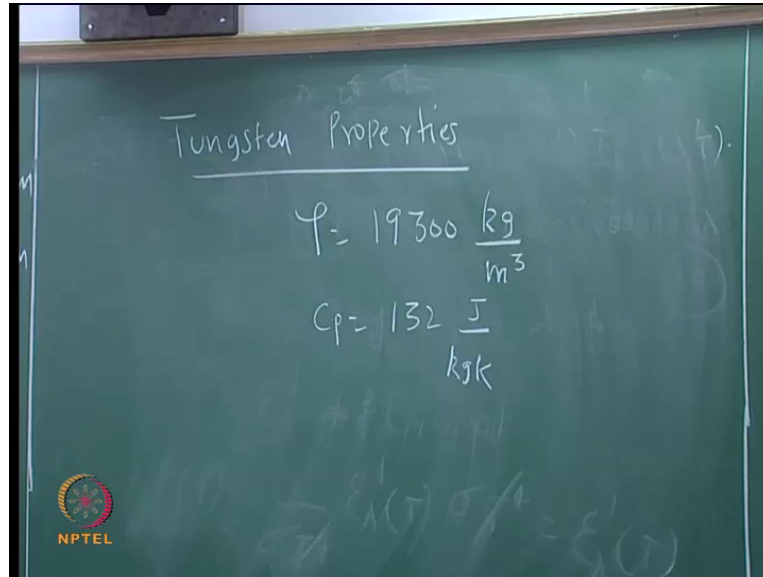 Tungsten Properties
ρ = 19300 kg/m³
Cp = 132 J/kgK
NPTEL